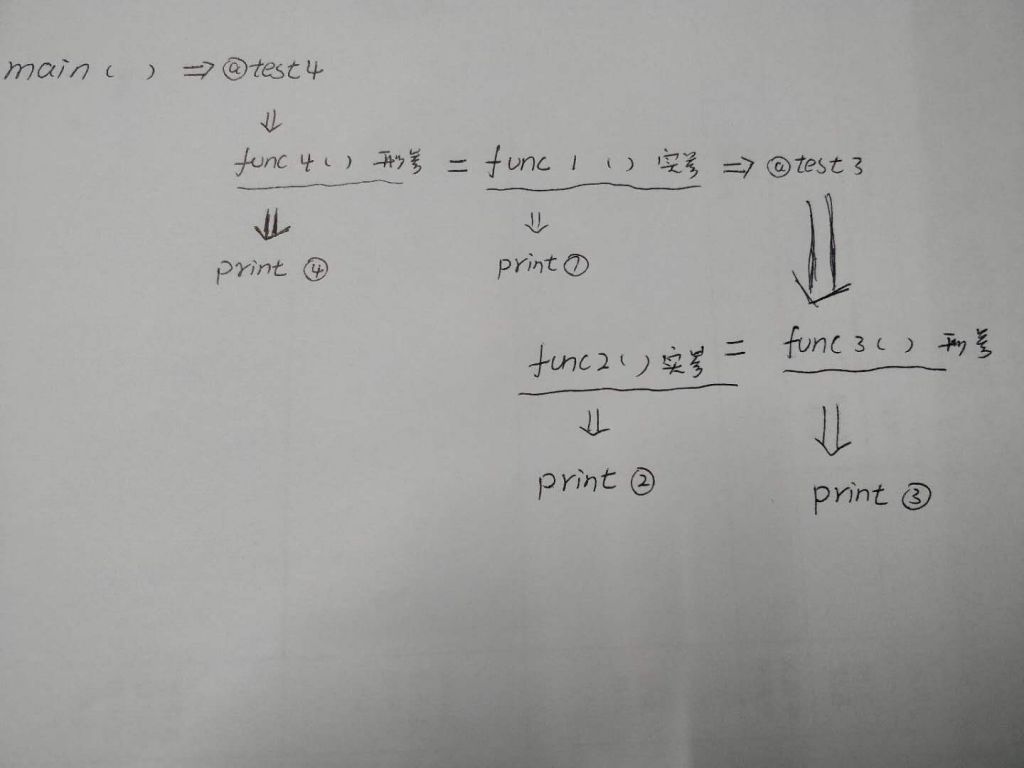 main ( ) ⇒ @test4
⇓
func 4 ( ) 形参 = func 1 ( ) 实参 ⇒ @test3
⇓ ⇓ ⇓
print ④ print ①
func2 ( ) 实参 = func 3 ( ) 形参
⇓ ⇓
print ② print ③